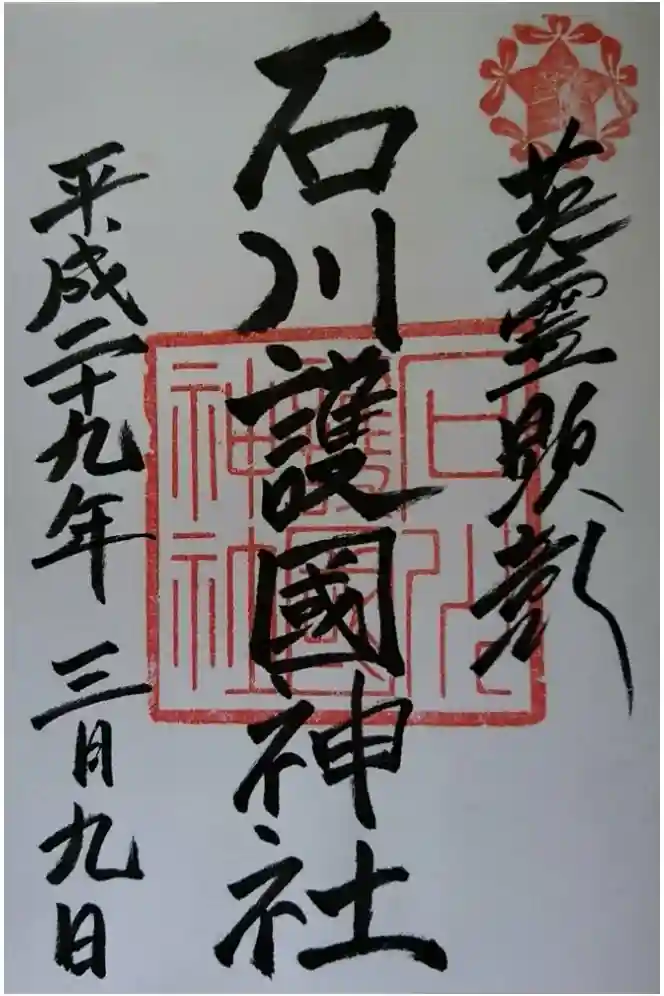 英霊顕彰
石川護國神社
平成二十九年 三月九日
石川
護國
神社